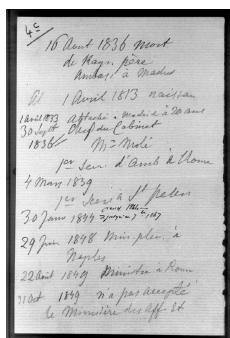 4c/
16 Aout 1836 mort
de Rayn. père
Ambas. à Madrid
1 Avril 1813 naissan
1 Avril 1833 Attaché à Madrid à 20 ans
30 Sept Chef du Cabinet
1836 Mr Molé
1er Secr. d'Amb à Rome
4 Mars 1839
1er Secr à St Peters
30 Janv 1844
29 Juin 1848 Min. plén. à
Naples
22 Aout 1849 Ministre à Rome
31 Oct 1849 n'a pas accepté
le Ministère des Aff. Et